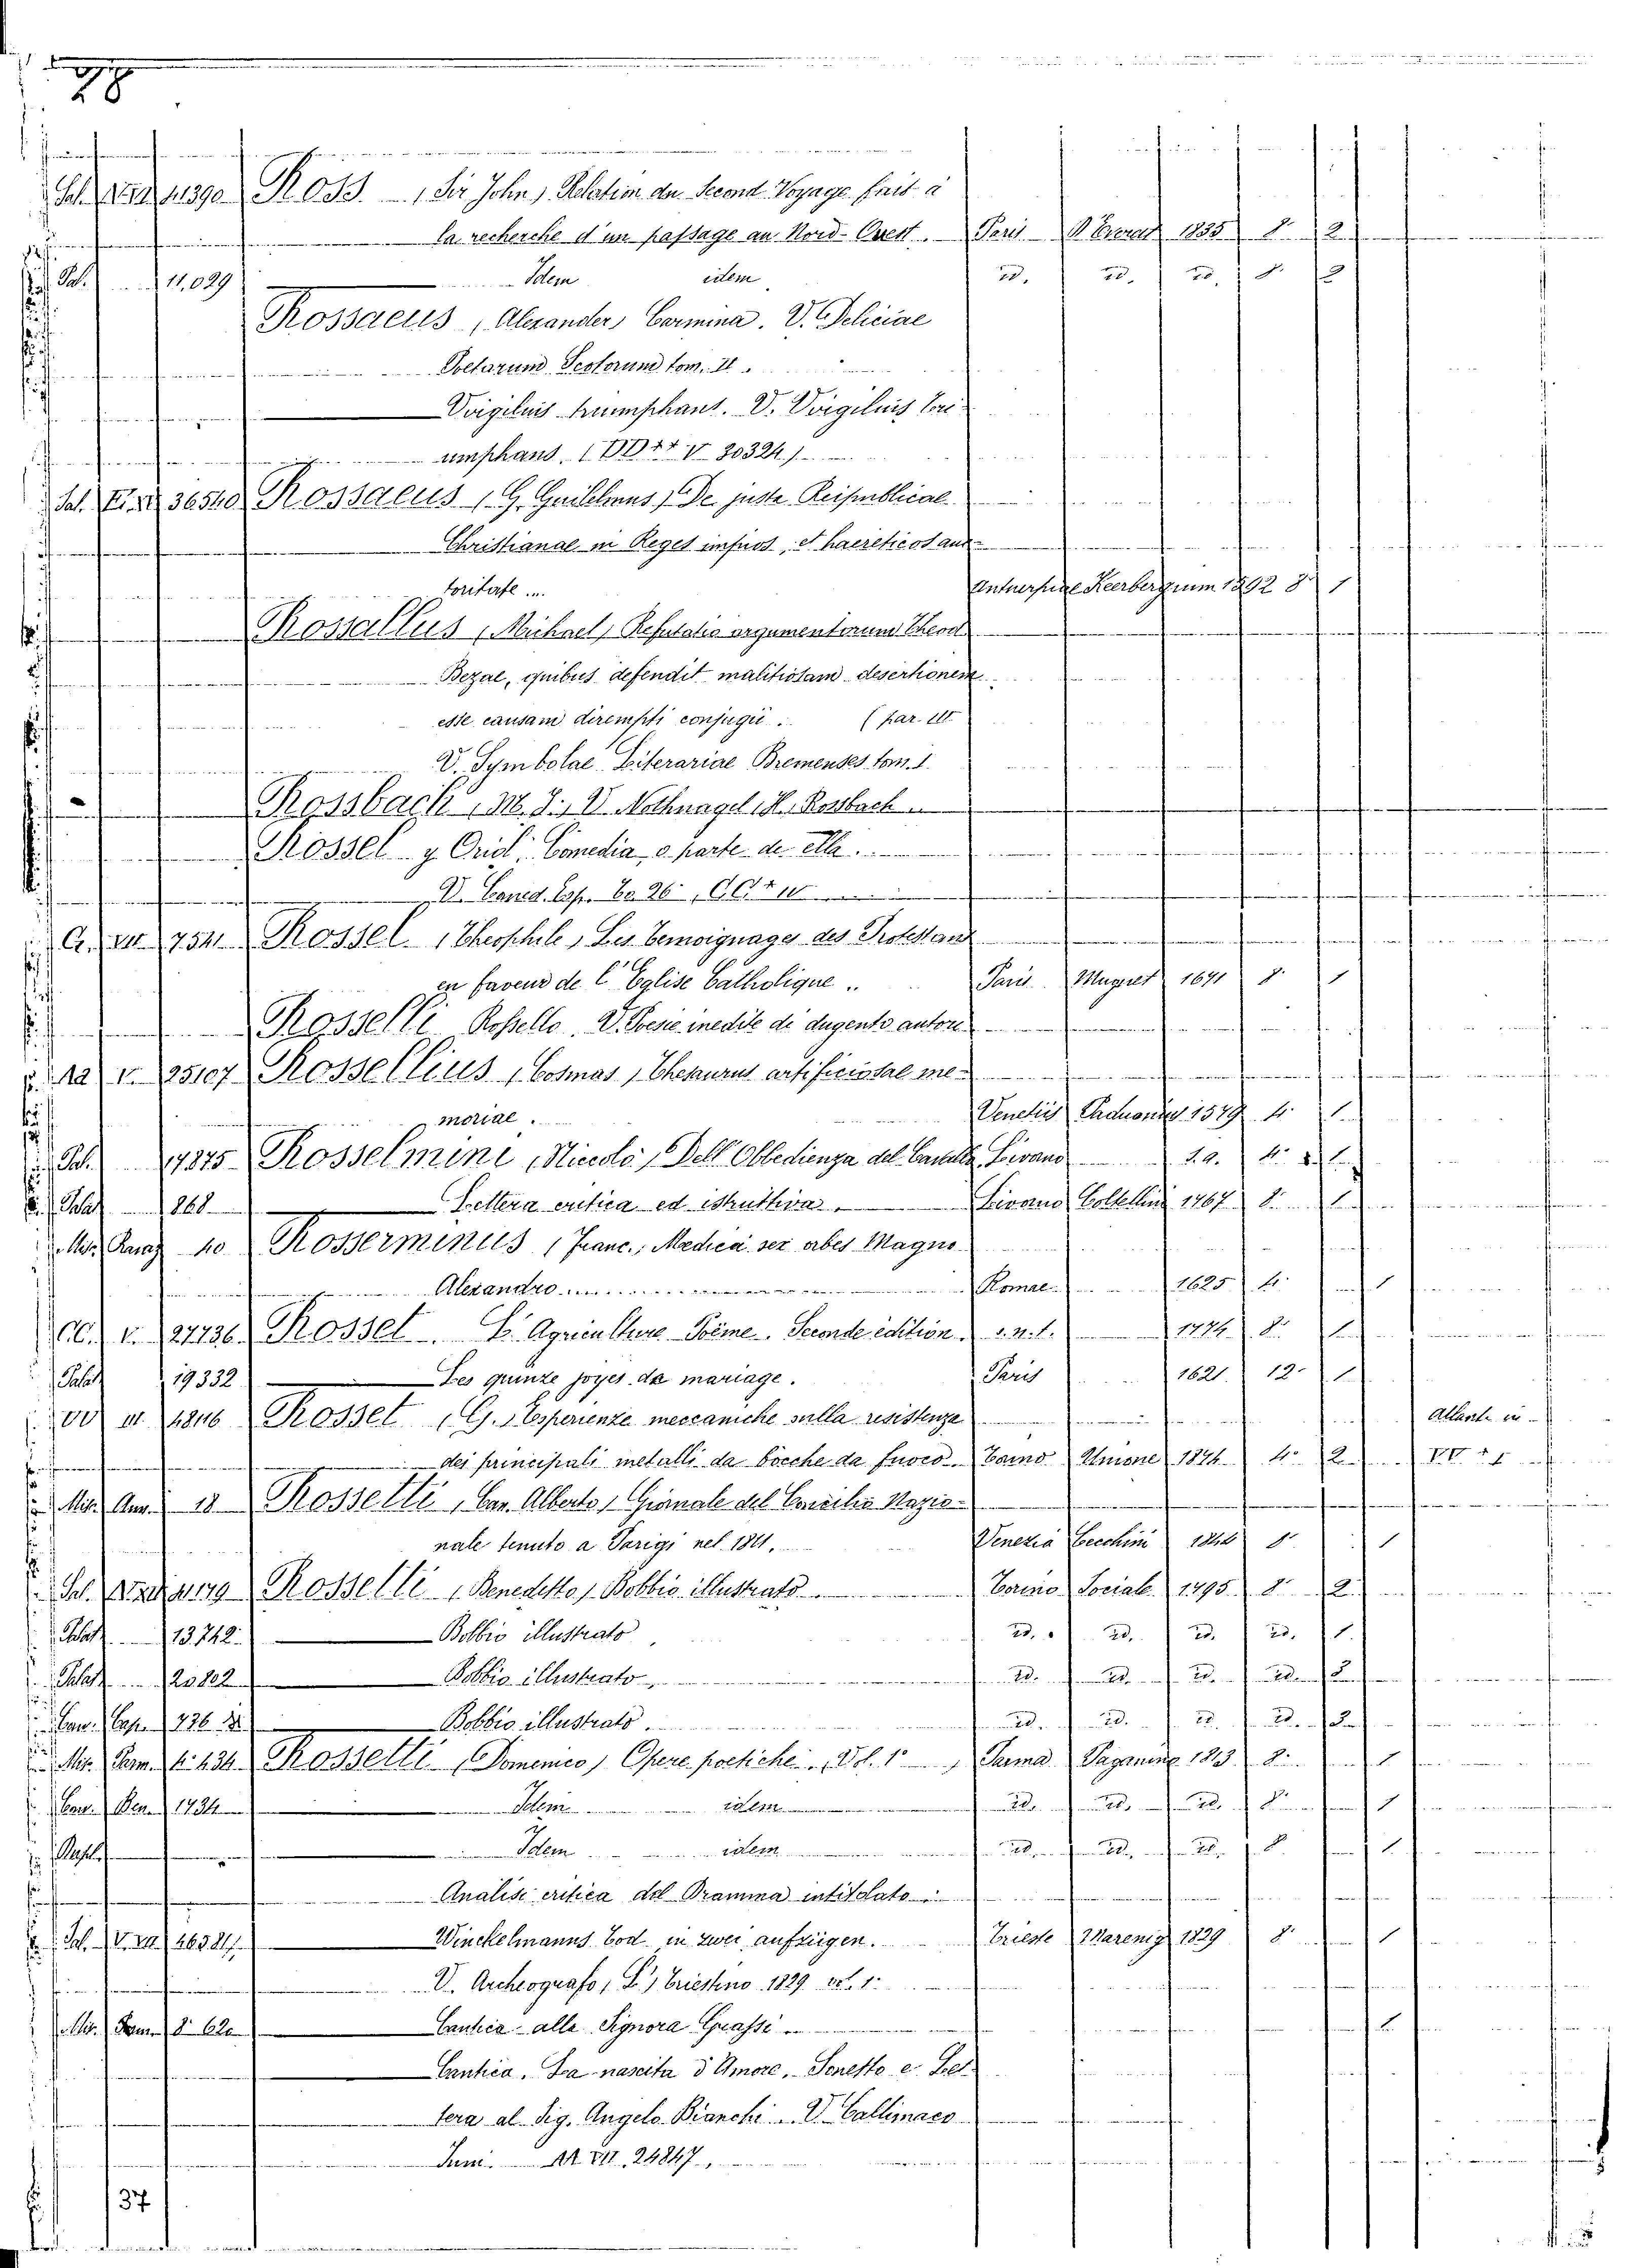 28
Sal. 11390 Ross (Sir John) Relation du Second Voyage fait à
la recherche d'un passage au Nord-Ouest. Paris 1835 8° 2
Pal. 11,029 Idem idem id. id. id. 8° 2
Rossaeus (Alexander) Carmina. V. Deliciae
Poetarum Scotorum tom. II.
Virgilius triumphans. V. Virgilius tri-
umphans. ( V 20324)
Sal. 36540 Rossaeus (G. Guilelmus) De justa Reipublicae
Christianae in Reges impios, et haereticos auc-
toritate .... Antuerpiae Keerbergium 1592 8° 1
Rossallus (Michael) Refutatio argumentorum Theod.
Bezae, quibus defendit malitiosam desertionem
esse causam dirempti conjugii. (par. III.
V. Symbolae Literariae Bremenses tom. I.
Rossbach (M. J.) V. Nothnagel (H. Rossbach ..
Rossel y Oriol. Comedia, o parte de ella ...
V. Comed. Esp. to. 26,
C. VII 7541 Rossel (Theophile) Les temoignages des Protestans
en faveur de l'Eglise Catholique .. Paris Muguet 1671 8° 1
Rosselli Rosello. V. Poesie inedite di dugento autori
AA V. 25107 Rossellius (Cosmas) Thesaurus artificiosae me-
moriae. Venetiis Paduanius 1579 4° 1
Pal. 17875 Rosselmini (Niccolò) Dell'Obbedienza del Cavallo Livorno s.a. 4° 1
Palat 868 Lettera critica ed istruttiva. Livorno Coltellini 1767 8° 1
Mis. 40 Rosserminius (Franc.) Medicea ser orbes Magno
Alexandro ..... Romae 1625 4° 1
CC. V. 27736 Rosset. L'Agriculture Poëme. Seconde édition. s.n.t. 1774 8° 1
Palat 19332 Les quinze joyes de mariage. Paris 1621 12° 1
OO III 4846 Rosset (G.) Esperienze meccaniche sulla resistenza Atlante in
dei principali metalli da bocche da fuoco. Torino Unione 1874 4° 2
Mis. Aur. 18 Rossetti (Cav. Alberto) Giornale del Concilio Nazio-
nale tenuto a Parigi nel 1811. Venezia Cecchini 1844 8° 1
Sal. Rossetti (Benedetto) Bobbio illustrato Torino Sociale 1795 8° 2
Palat 13.742 Bobbio illustrato id. id. id. id. 1.
Palat 20802 Bobbio illustrato id. id. id. id. 2
Cav. Cap. 736 Bobbio illustrato. id. id. id. id. 2
Mis. Pam. 4° 434 Rossetti (Domenico) Opere poetiche. Vol. 1° Parma Paganino 1813 8° 1
Cav. Ben. 1734 Idem idem id. id. id. 8° 1
Idem idem id. id. id. 8 1
Analisi critica del Dramma intitolato
Winckelmanns Tod in zwei aufzügen. Trieste Marenig 1829 8° 1
V. Archeografo (L') Triestino 1829 vol. 1°
Mis. Pam. 8° 620 Cantica alla Signora Grassi .. 1
Cantica. La nascita d'Amore, Sonetto e Let-
tera al Sig. Angelo Bianchi. V. Callimaco
24847.
37